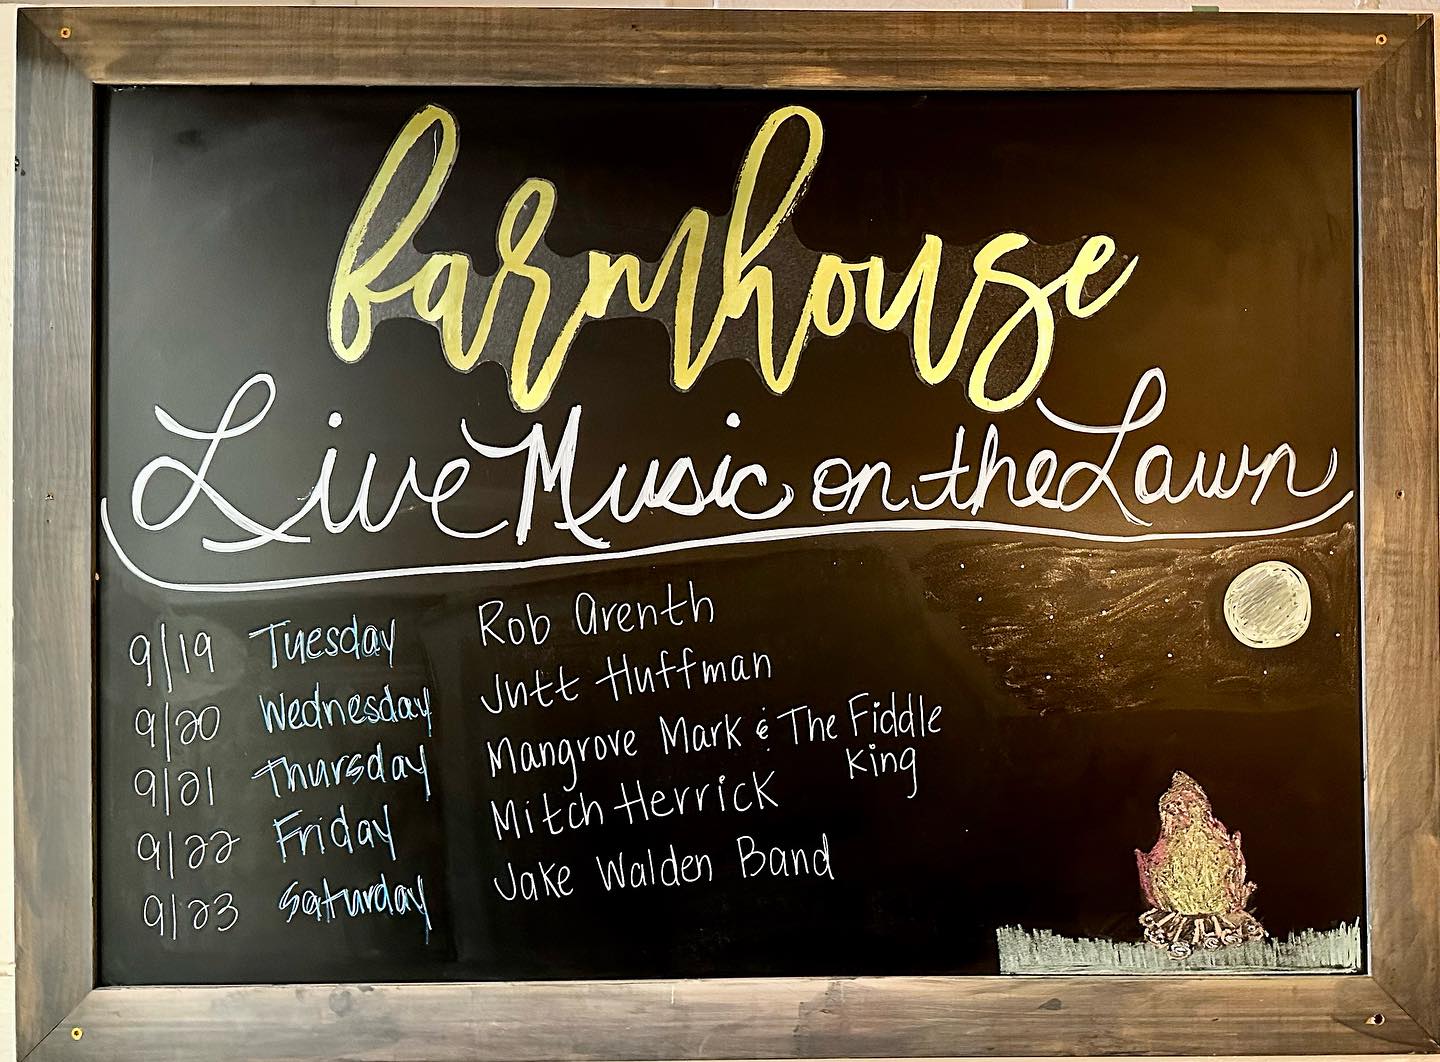 farmhouse
Live Music on the Lawn
9/19 Tuesday Rob Arenth
9/20 Wednesday Jutt Huffman
9/21 Thursday Mangrove Mark & The Fiddle
King
9/22 Friday Mitch Herrick
9/23 Saturday Jake Walden Band